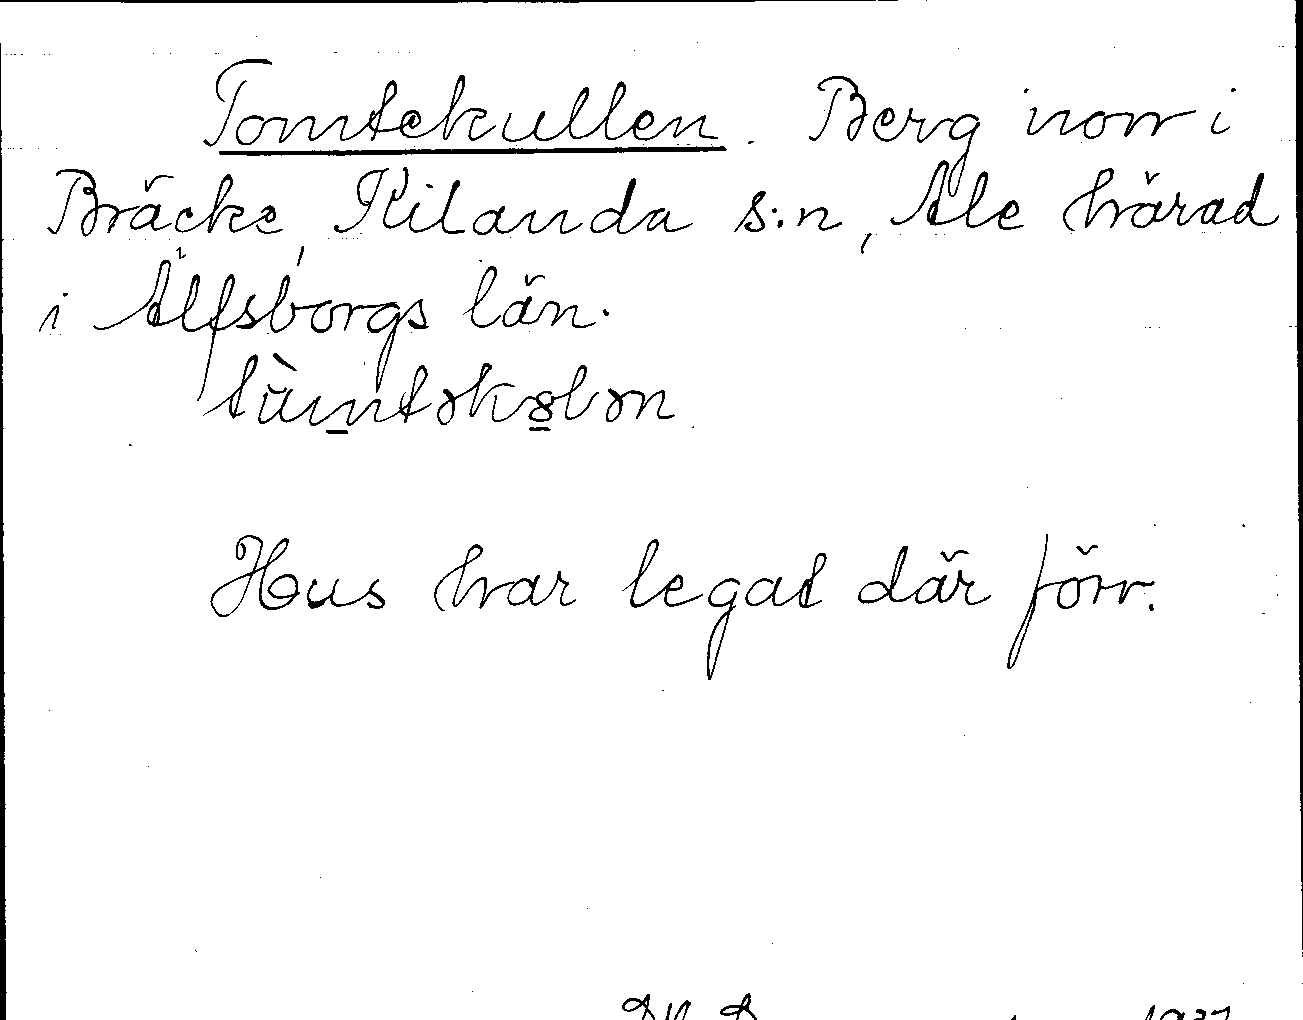 Tomtekullen. Berg i norr i
Bräcke, Kilanda s:n, Ale härad
i Älfsborgs län.
Hus har legat där förr.
1937